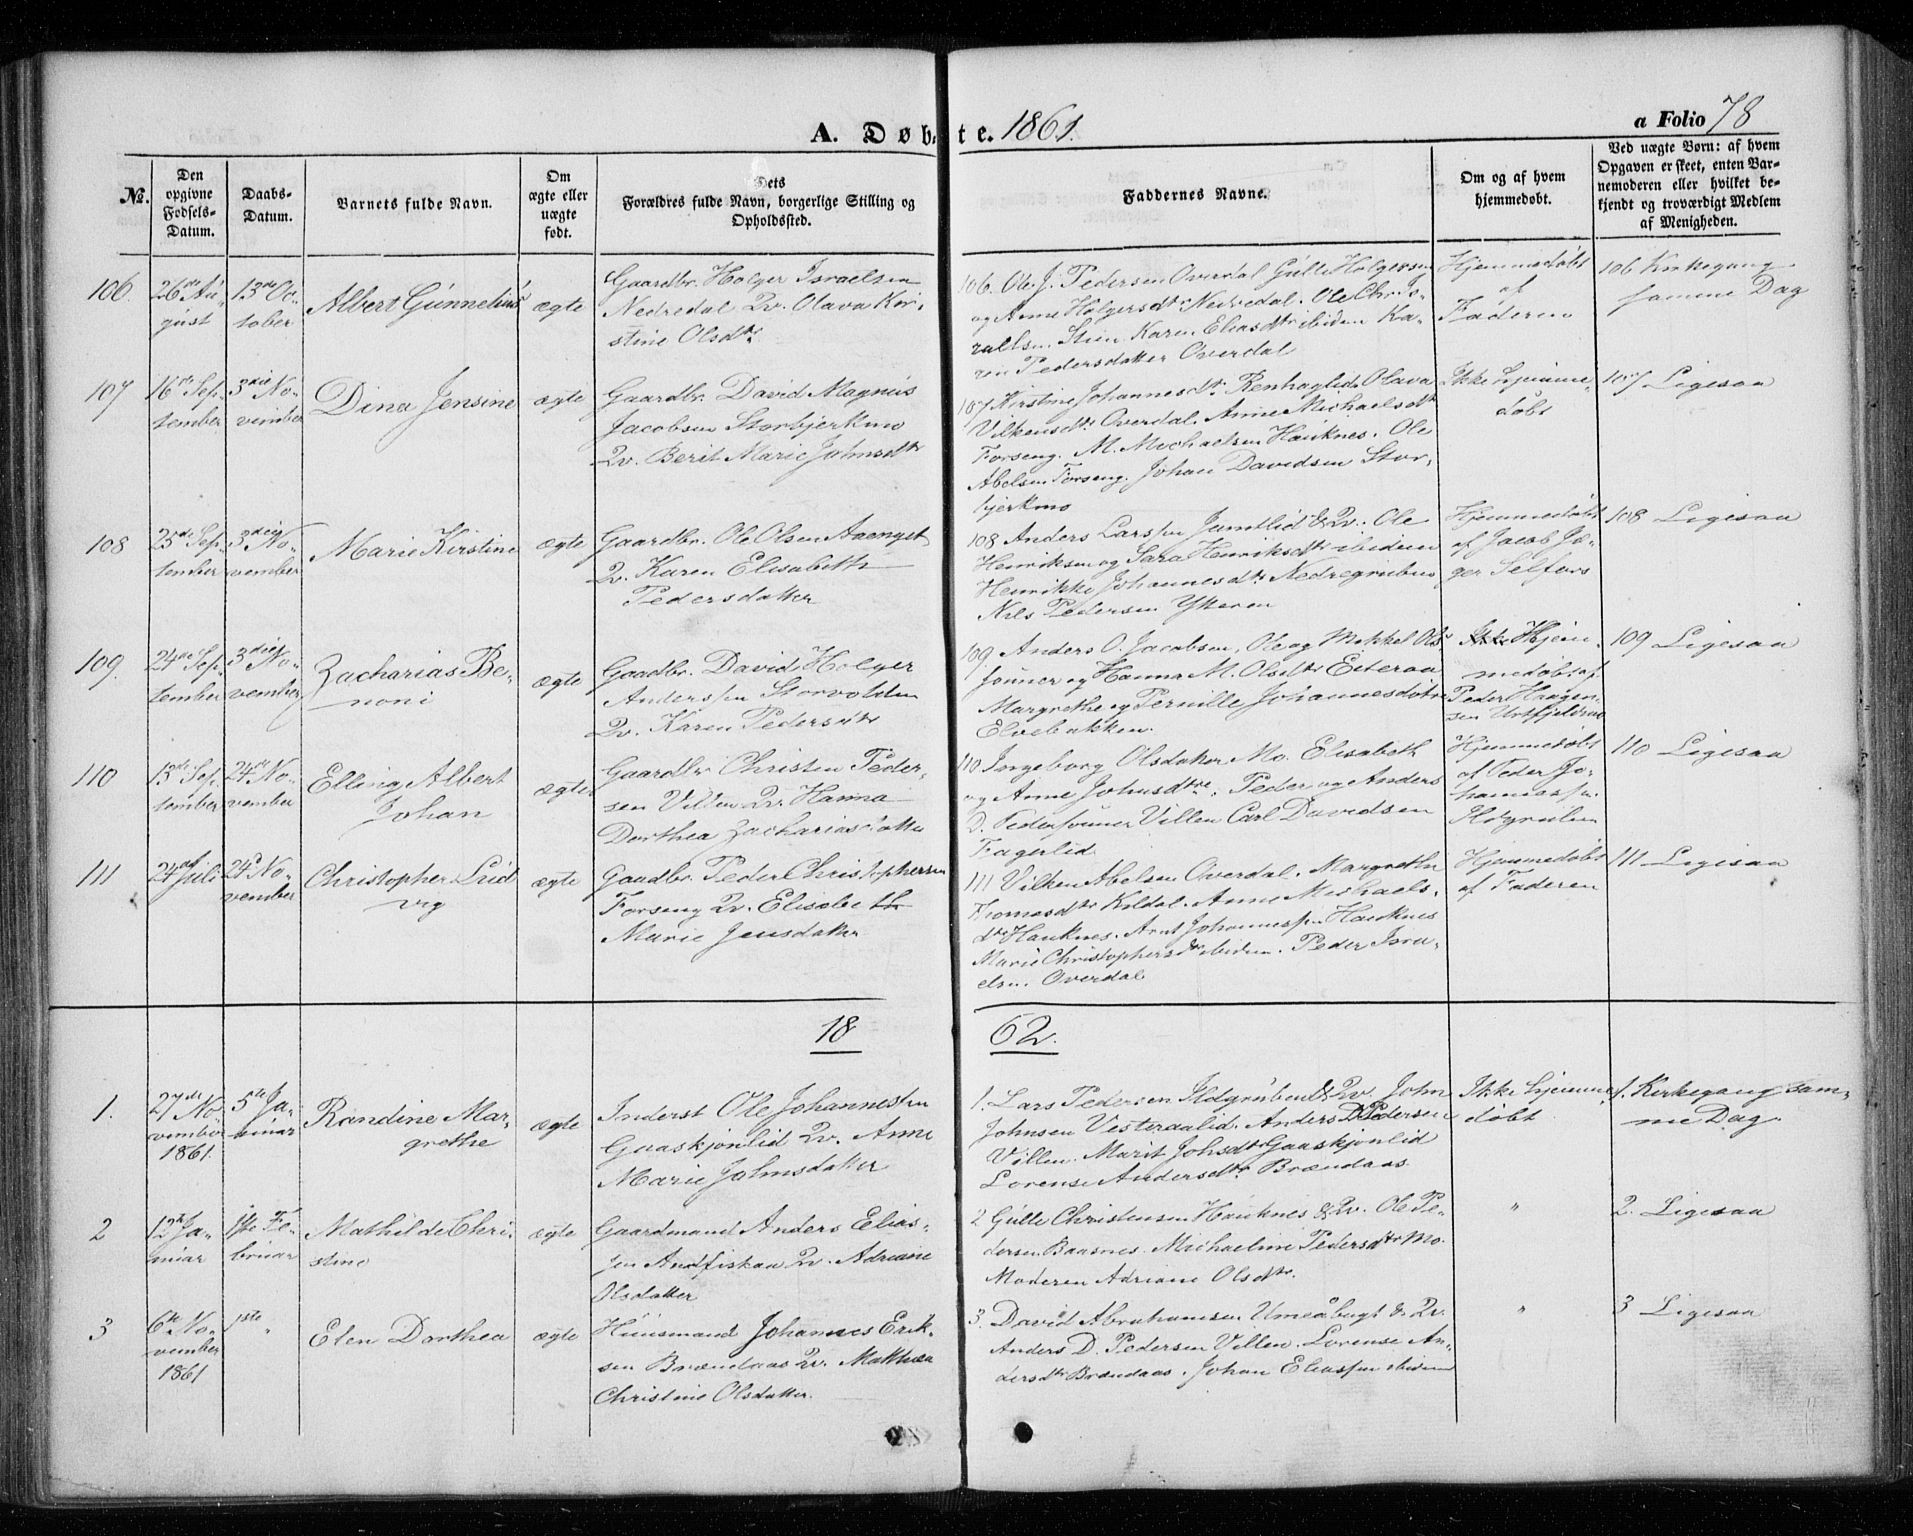 A. Døbte. 1861.
a Folio 78
No.
Den opgivne Fødsels-Datum.
Daabs-Datum.
Barnets fulde Navn.
Om ægte eller uægte født.
Dets Forældres fulde Navn, borgerlige Stilling og Opholdssted.
Faddernes Navne.
Om og af hvem hjemmedøbt.
Ved uægte Børn: af hvem Opgaven er skeet, enten Barnemoderen eller hvilket bekjendt og troværdigt Medlem af Menigheden.
106.
26de Au-
gust
13de Oc-
tober
Albert Günnelius
ægte
Gaardbr. Holger Israelsen
Nedredal Qv. Olava Kir-
stine Olsdtr
106. Ole J. Pedersen Overdal Gulle Holgersen
og Anne Holgersdtr Nedredal. Ole Chris-
Stien Karen Eliasdtr ibiden Ka-
ren Pedersdatter Overdal
Hjemmedøbt
af
Faderen
106 Kirkegang
samme Dag
107
16de Sep-
tember
3die No-
vember
Dina Jensine
ægte
Gaardbr. David Magnus
Jacobsen Storbjerkmo
Qv. Berit Marie Johnsdtr
107 Kirstine Johannesdtr Renhaglid Olava
Vilkensdtr Overdal. Anne Michaelsdtr
Forseng. M. Michaelsen Hauknes. Ole
Abelsen Forseng. Johan Davidsen Stor-
bjerkmo
Ikke hjemme-
døbt
107 Ligesaa
108
23de Sep-
tember
3die No-
vember
Marie Kirstine
ægte
Gaardbr. Ole Olsen Aaenget
Qv. Karen Elisabeth
Pedersdatter
108 Anders Larssen Jamtlid & Qv. Ole
Henriksen og Sara Henriksdtr ibiden
Henrikke Johannesdtr Nedregruben
Nils Pedersen Ytteren
Hjemmedøbt
af Jacob Jæ-
ger Selfors
108 Ligesaa
109.
24de Sep-
tember
3die No-
vember
Zacharias Be-
noni
ægte
Gaadbr. David Holger
Anderssen Storvolden
Qv. Karen Pedersdtr
109 Anders O. Jacobsen, Ole og Mikkel Ols-
sønner og Hanna M. Olsdtr Eiteraa
Margrethe og Pernille Johannesdøtre
Elvebakken.
Ikke Hjem-
medøbt af
Peder Haagen-
sen Urtfjeldmo
109 Ligesaa
110
13de Sep-
tember
24de No-
vember
Elling Albert
Johan
ægte
Gaardbr. Christen Peder-
sen Villen Qv. Hanna
Dorthea Zachariasdatter
110 Ingeborg Olsdatter Mo. Elisabeth
og Anne Johnsdtre. Peder og Anders
D. Pedersønner Villen Carl Davidsen
Fagerlid
Hjemmedøbt
af Peder Jo-
hannessen
Ildgruben
110 Ligesaa
111
24de Juli
24de No-
vember
Christopher Lud
vig
ægte
Gaadbr. Peder Christophersen
Forseng Qv. Elisabeth
Marie Jensdatter
111 Vilken Abelsen Overdal. Margrethe
Thomasdtr Kildal. Anne Michaels-
dtr Hauknes. Arnt Johannessen Hauknes
Marie Christophersdtr ibiden. Peder Isra-
elsen. Overdal
Hjemmedøbt
af Faderen
111 Ligesaa
18 62.
1.
27de No-
vember
1861.
5te Ja-
nuar
Randine Mar-
grethe
ægte
Inderst Ole Johannessen
Gaaskjønlid Qv. Anne
Marie Johnsdatter
1. Lars Pedersen Ildgruben & Qv. John
Johnsen Vesteraalid. Anders D Pedersen
Villen. Marit Johsdtr Gaaskjønlid
Lorense Andersdtr Brændaas.
Ikke hjemme
døbt
1. Kirkegang sam-
me Dag.
2
12te Ja-
nuar
1ste Fe-
bruar
Mathilde Chri-
stine
ægte
Gaardmand Anders Elias-
sen Andfiskaa Qv. Adriane
Olsdatter
2 Gulle Christensen Hauknes & Qv. Ole Pe-
dersen Baasnes. Michaeline Pedersdtr Mo.
Moderen Adriane Olsdtr.
"
2. Ligesaa
3
6te No-
vember
1861
1ste "
Elen Dorthea
ægte
Huusmand Johannes Erik-
sen Brændaas Qv. Mathea
Christine Olsdatter.
3. David Abrahamsen Umeåbugt & Qv.
Anders D. Pedersen Villen. Lorense An-
dersdtr Brændaas. Johan Eliassen ibiden
"
3 Ligesaa